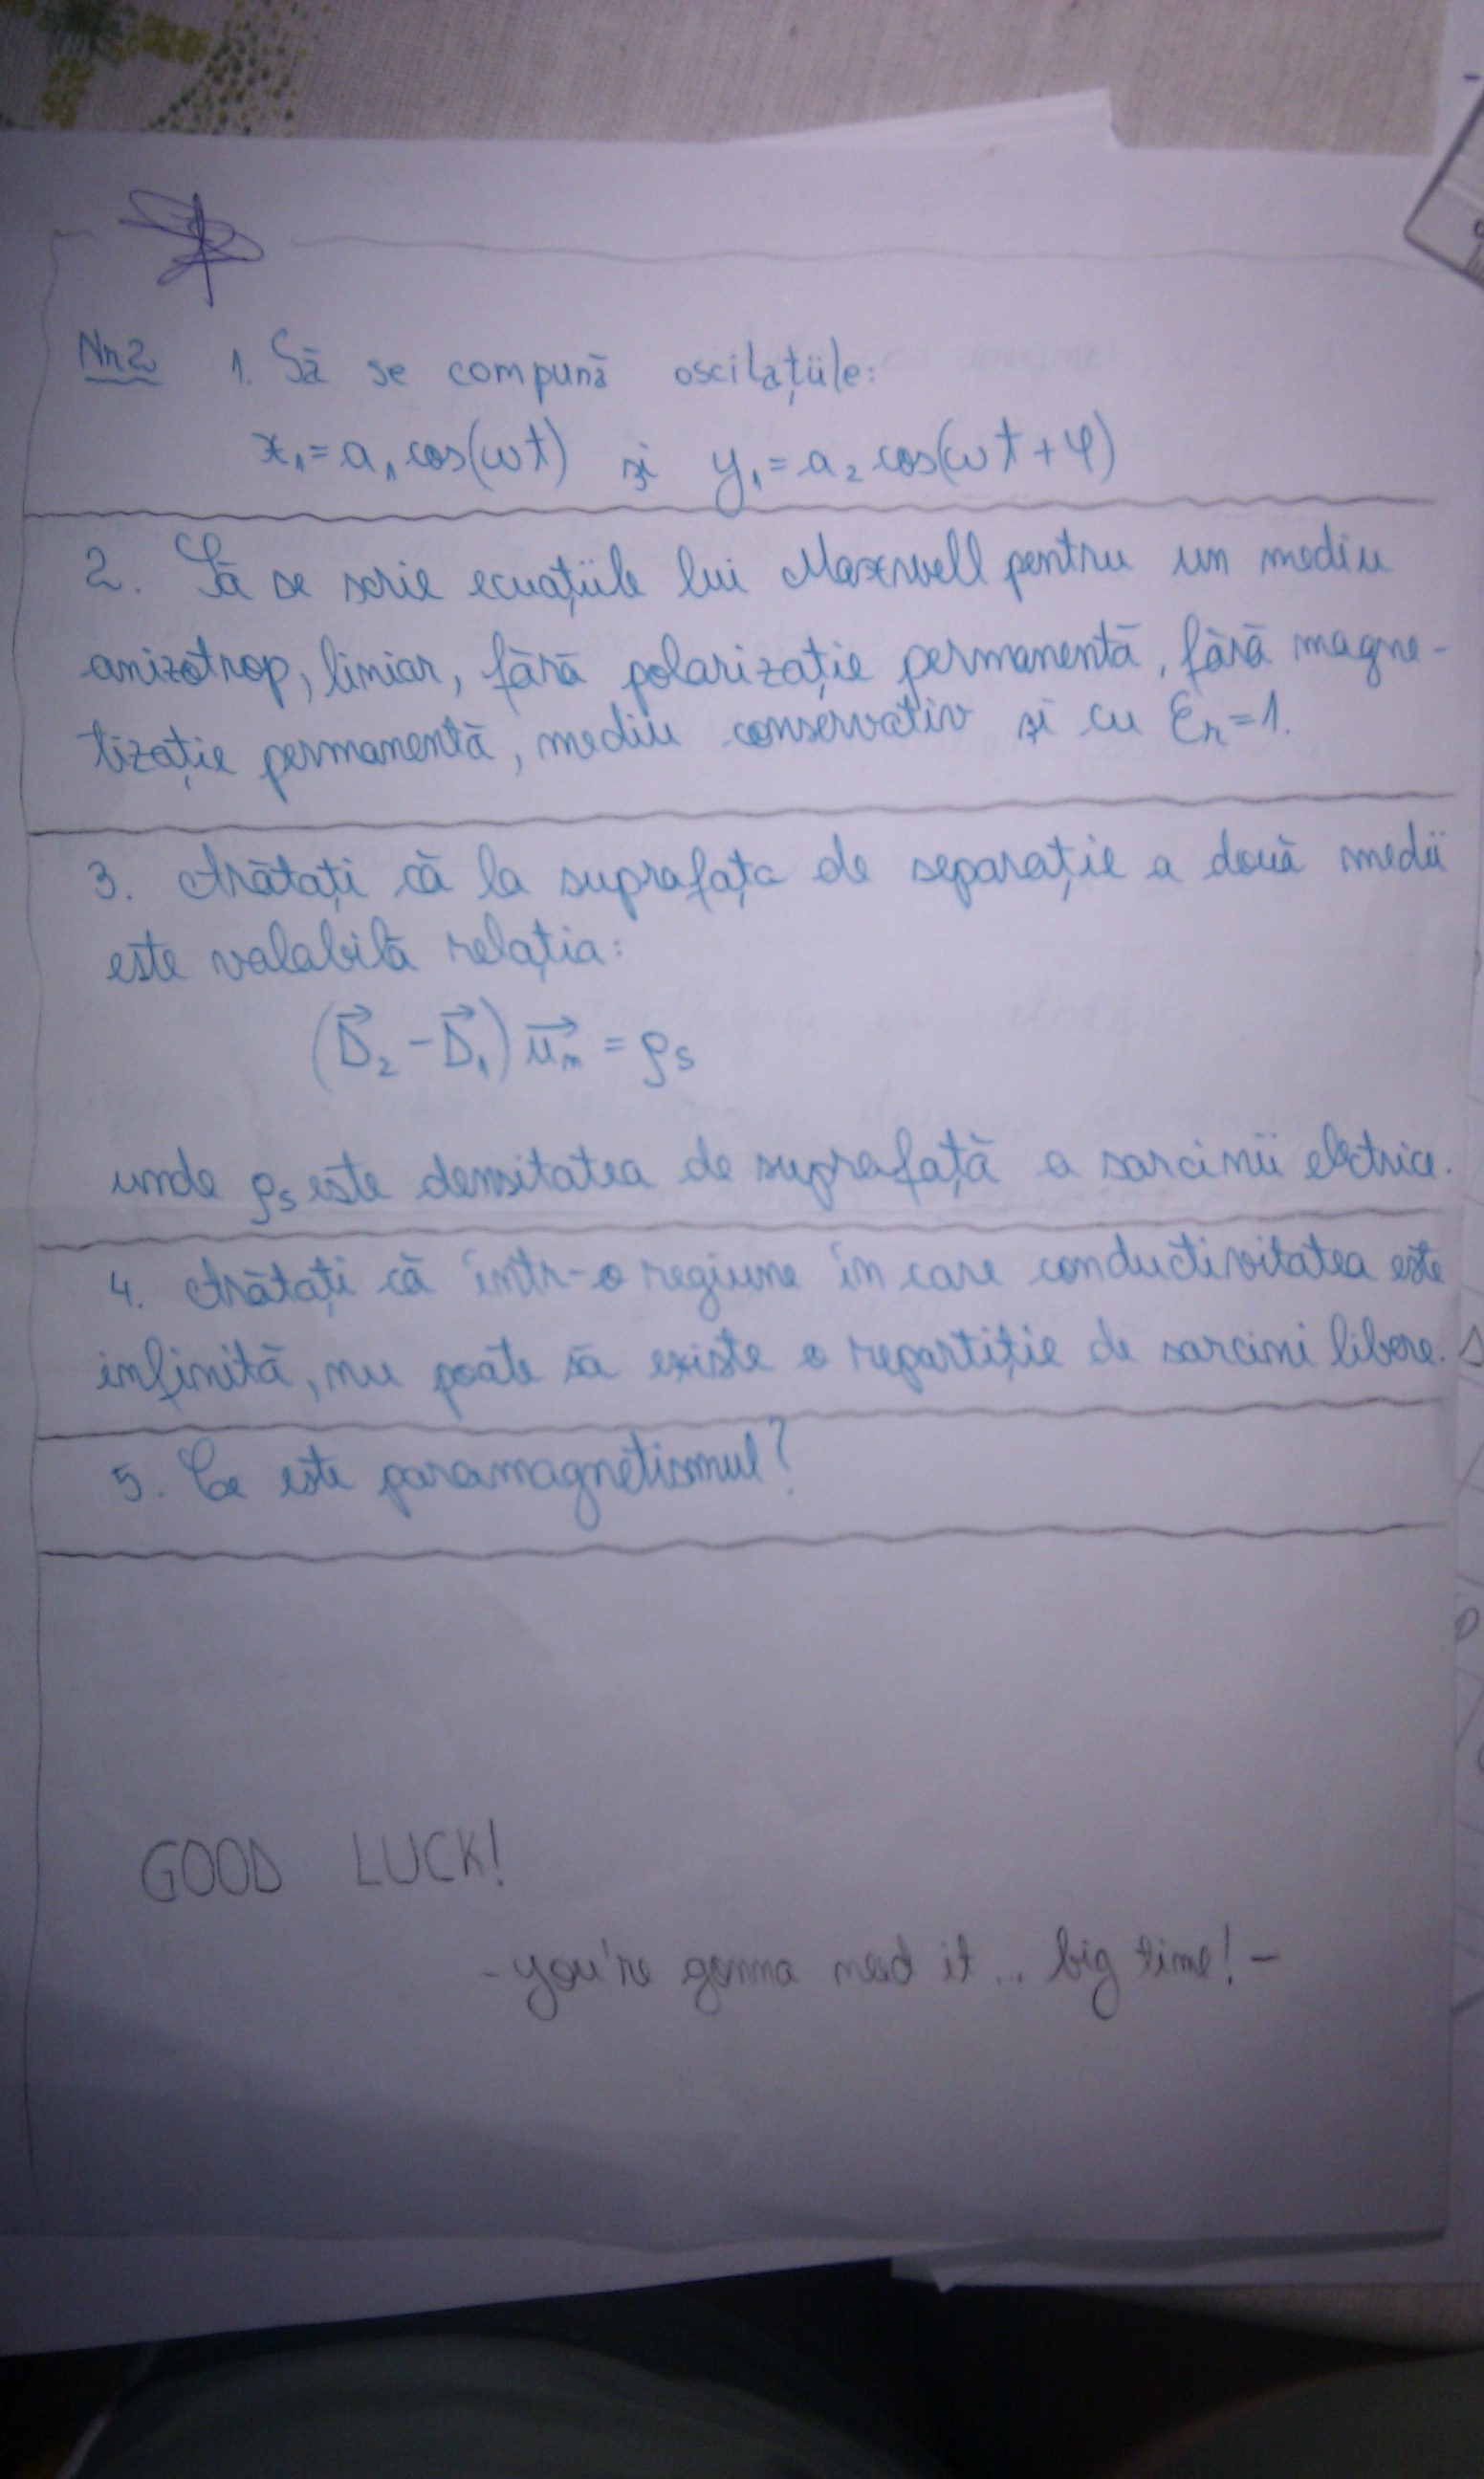 Nr2 1. Să se compună oscilațiile:
x₁=a₁cos(ωt) și y₁=a₂cos(ωt+φ)
2. Să se scrie ecuațiile lui Maxwell pentru un mediu
anizotrop, liniar, fără polarizație permanentă, fără magne-
tizație permanentă, mediu conservativ și cu Ɛr=1.
3. Arătați că la suprafața de separație a două medii
este valabilă relația:
(D⃗₂-D⃗₁)u⃗ₙ=ρs
unde ρs este densitatea de suprafață a sarcinii electrice.
4. Arătați că într-o regiune în care conductivitatea este
infinită, nu poate să existe o repartiție de sarcini libere.
5. Ce este paramagnetismul?
GOOD LUCK!
-you're gonna need it... big time!-